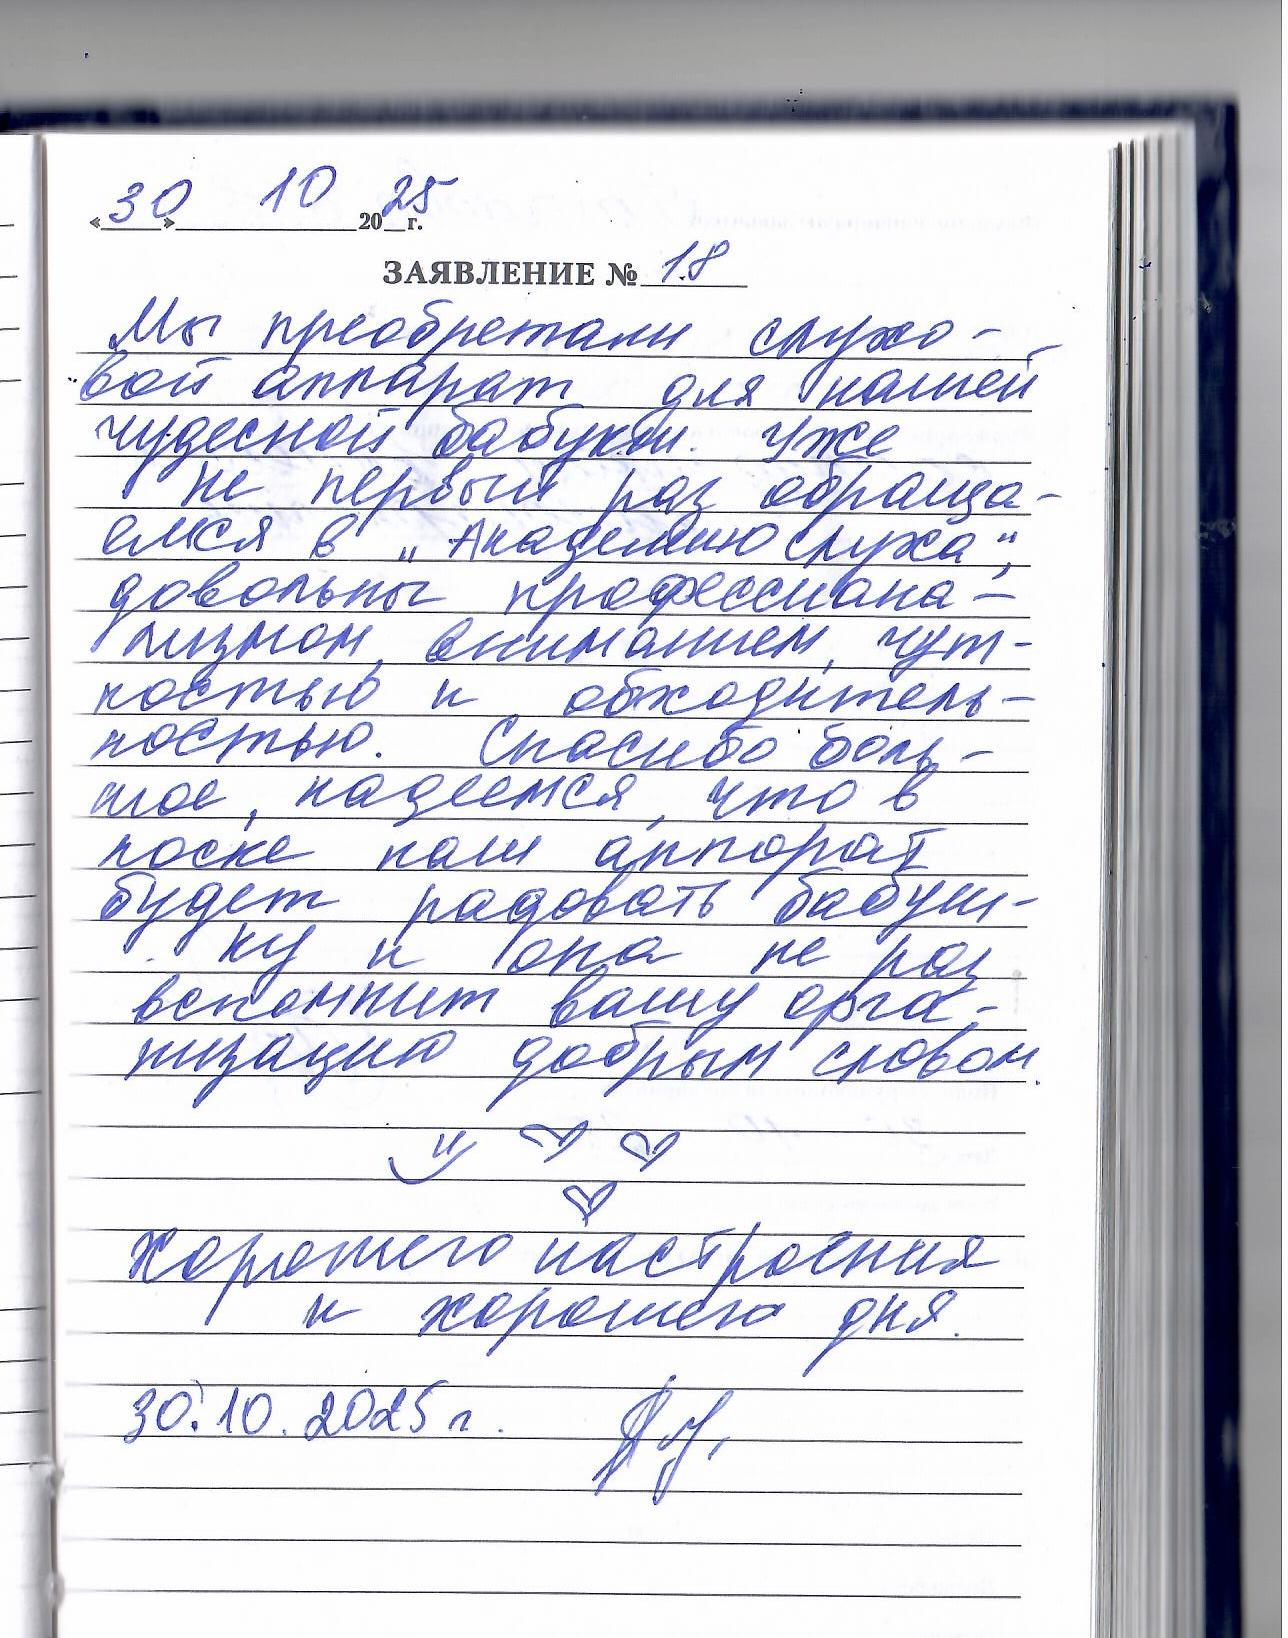 «30» 10 2025г.
ЗАЯВЛЕНИЕ № 18
Мы преобретали слухо-
вой аппарат для нашей
чудесной бабукти. Уже
не первый раз обраща-
емся в „Академию слуха",
довольны профессиана-
лизмом, вниманием, чут-
костью и обходитель-
ностью. Спасибо боль-
шое, надеемся, что в
носке наш аппарат
будет радовать бабуш-
ку и она не раз
вспомнит вашу орга-
низацию добрым словом.
Хорошего настроения
и хорошего дня.
30.10.2025 г.